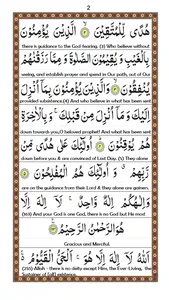 2
هُدًى لِّلْمُتَّقِينَ ۝ الَّذِينَ يُؤْمِنُونَ
there is guidance to the God-fearing. (2) Who believe without
بِالْغَيْبِ وَ يُقِيمُونَ الصَّلٰوةَ وَ مِمَّا رَزَقْنٰهُمْ
seeing, and establish prayer and spend in Our path, out of Our
يُنْفِقُوْنَ ۝ وَ الَّذِينَ يُؤْمِنُونَ بِمَا أُنْزِلَ
provided subsistence. (3) And who believe in what has been sent
إِلَيْكَ وَ مَا أُنْزِلَ مِنْ قَبْلِكَ وَ بِالْاٰخِرَةِ
down towards you, O beloved prophet! And what has been sent
هُمْ يُوْقِنُوْنَ ۝ أُولٰٓئِكَ عَلٰى هُدًى مِّنْ
down before you & are convinced of Last Day. (5) They alone
رَّبِّهِمْ وَ أُولٰٓئِكَ هُمُ الْمُفْلِحُوْنَ ۝
are on the guidance from their Lord & they alone are gainers.
وَ اِلٰهُكُمْ اِلٰهٌ وَّاحِدٌ لَآ اِلٰهَ اِلَّا
(163) And your God is one God, there is no God but He most
هُوَ الرَّحْمٰنُ الرَّحِيْمُ ۝
Gracious and Merciful.
اَللّٰهُ لَآ اِلٰهَ اِلَّا هُوَ اَلْحَيُّ الْقَيُّوْمُ
(255) Allah - there is no deity except Him, the Ever-Living, the
Sustainer of [all] existence.